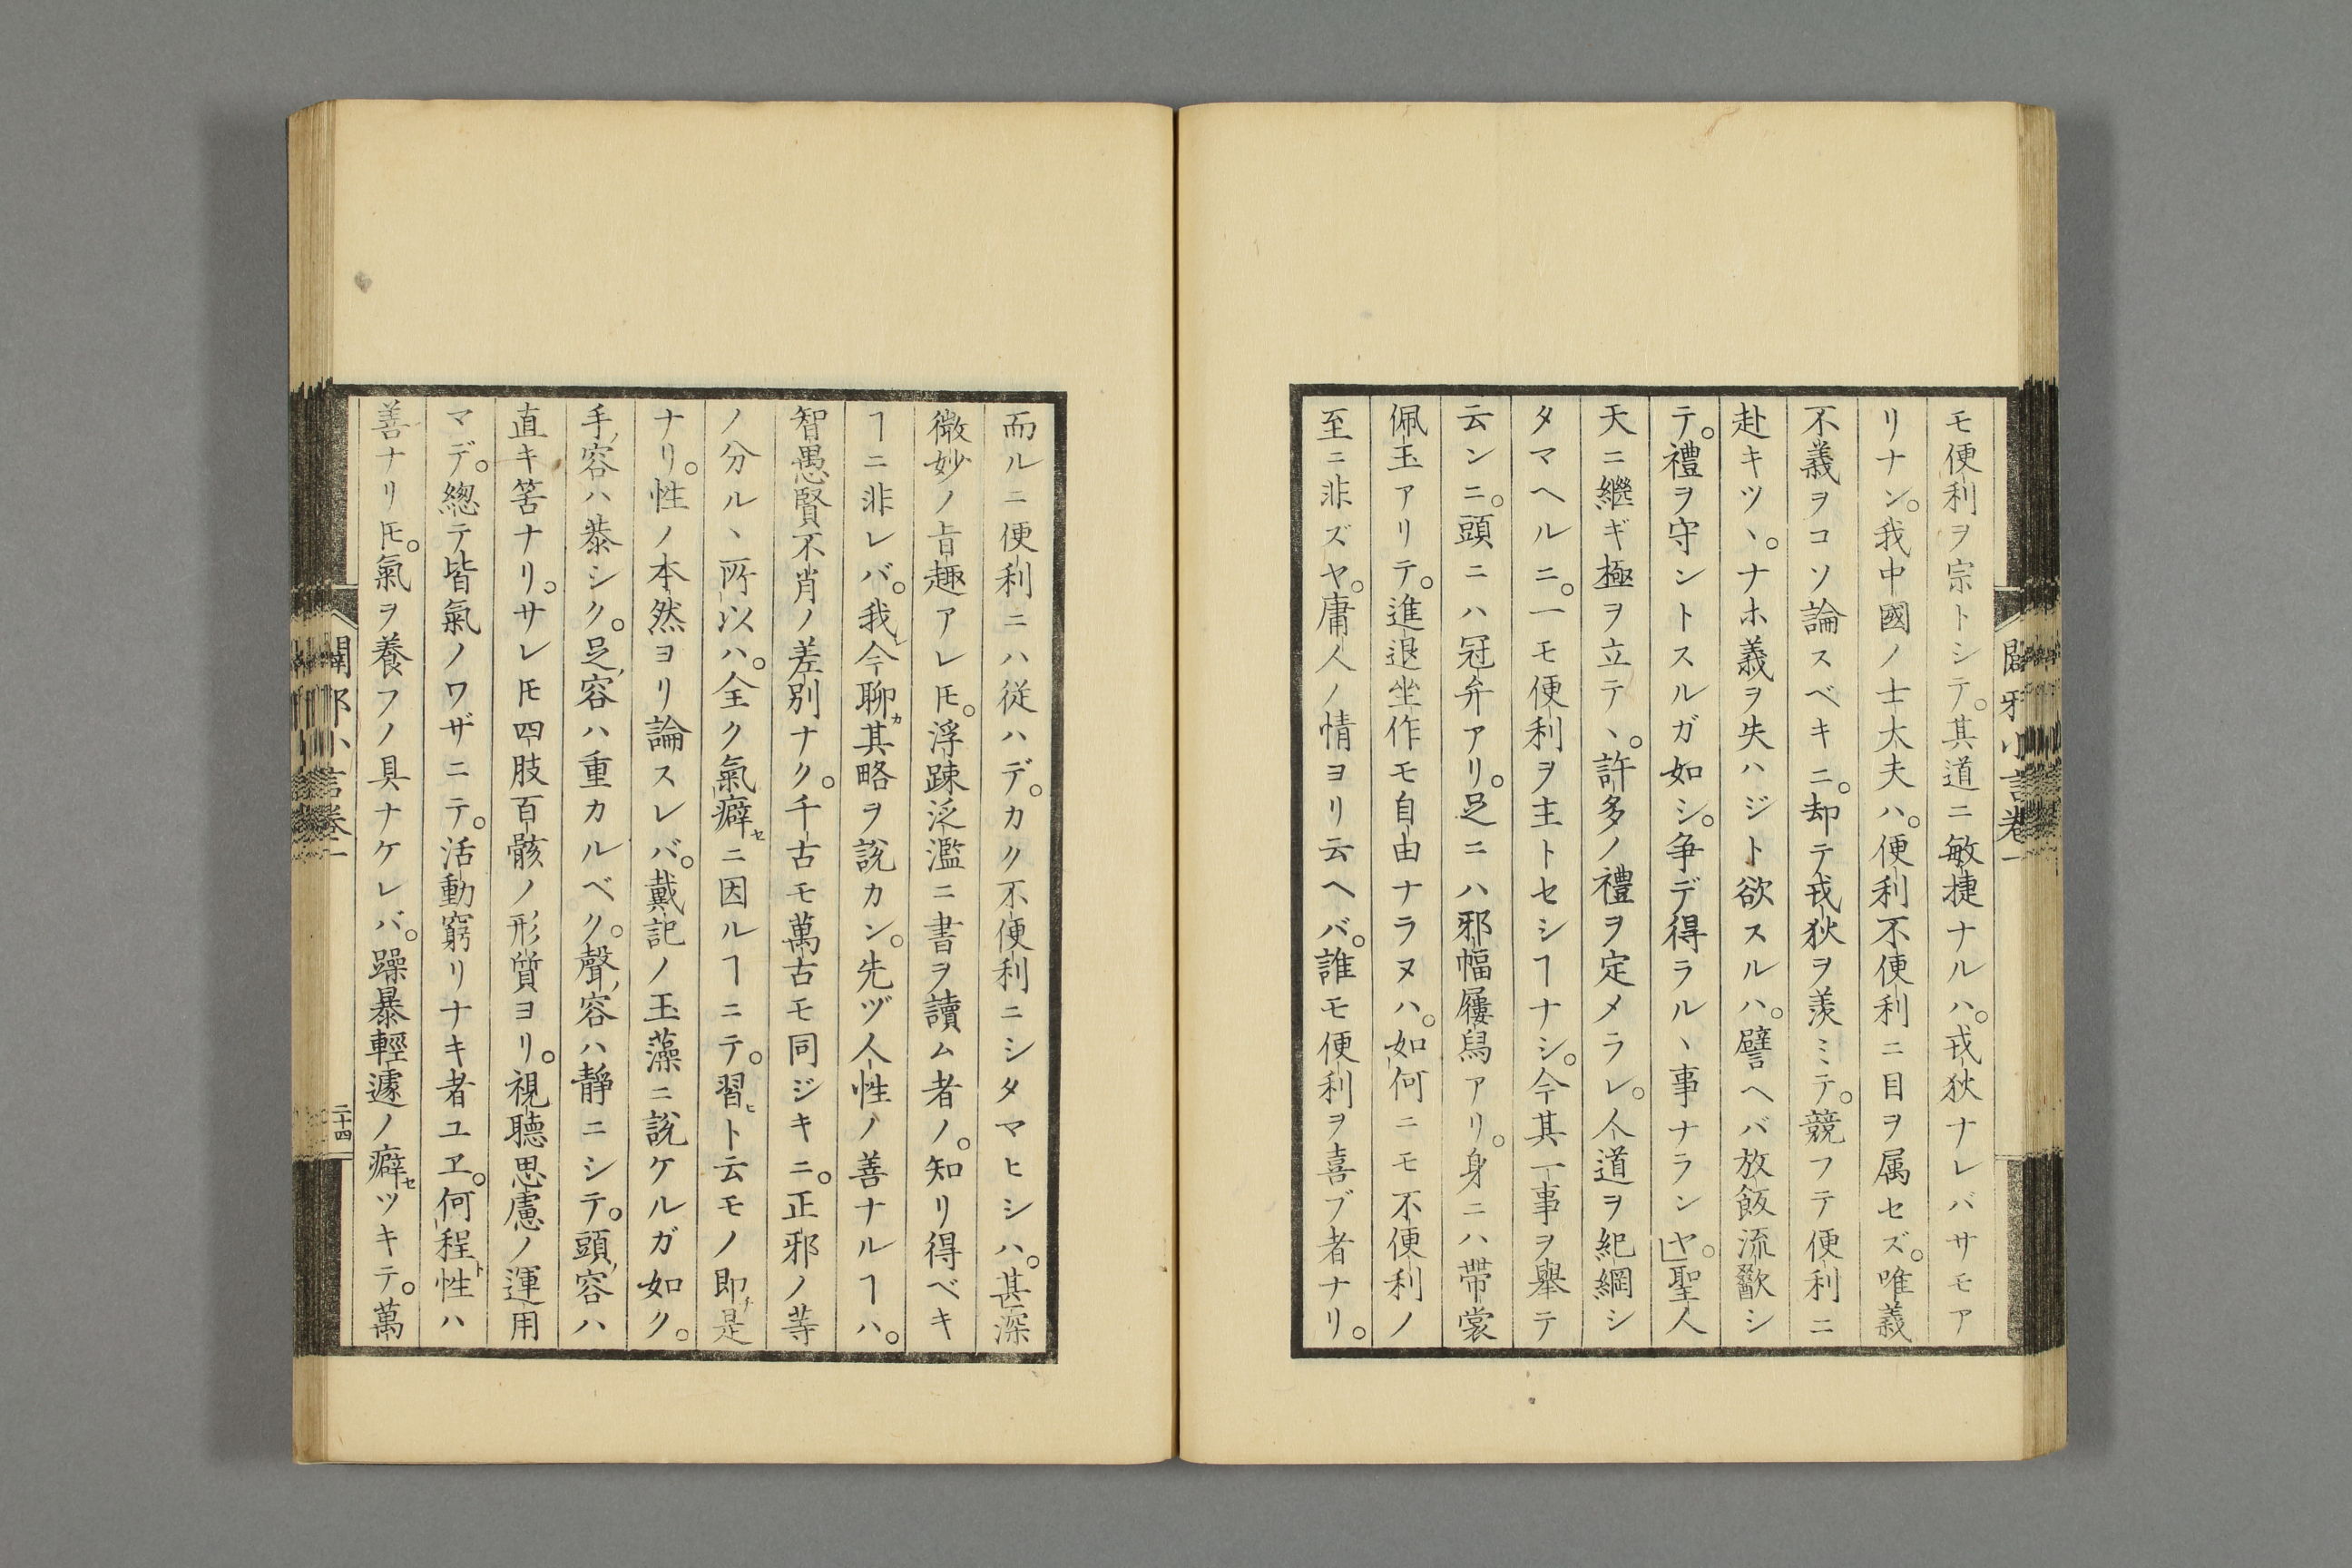 モ便利ヲ宗トシテ。其道ニ敏捷ナルハ。戎狄ナレバサモア
リナン。我中國ノ士大夫ハ。便利不便利ニ目ヲ属セズ。唯義
不義ヲコソ論スベキニ。却テ戎狄ヲ羨ミテ。競フテ便利ニ
赴キツヽ。ナホ義ヲ失ハジト欲スルハ。譬ヘバ放飯流歠シ
テ。禮ヲ守ントスルガ如シ。争デ得ラルヽ事ナランヤ。」聖人
天ニ繼ギ極ヲ立テヽ。許多ノ禮ヲ定メラレ。人道ヲ紀綱シ
タマヘルニ。一モ便利ヲ主トセシヿナシ。今其一事ヲ舉テ
云ンニ。頭ニハ冠弁アリ。足ニハ邪幅屨舄アリ。身ニハ帶裳
佩玉アリテ。進退坐作モ自由ナラヌハ。如何ニモ不便利ノ
至ニ非ズヤ。庸人ノ情ヨリ云ヘバ。誰モ便利ヲ喜ブ者ナリ。
闢邪小言卷一
而ルニ便利ニハ從ハデ。カク不便利ニシタマヒシハ。甚深
微妙ノ旨趣アレ𪜈。浮踈泛濫ニ書ヲ讀ム者ノ。知リ得ベキ
ヿニ非レバ。我レ今聊カ其略ヲ說カン。先ヅ人性ノ善ナルヿハ。
智愚賢不肖ノ差別ナク。千古モ萬古モ同ジキニ。正邪ノ等
ノ分ルヽ所以ハ。全ク氣癖セニ因ルヿニテ。習ヒト云モノ即チ是
ナリ。性ノ本然ヨリ論スレバ。戴記ノ玉藻ニ說ケルガ如ク。
手ノ容ハ恭シク。足ノ容ハ重カルベク。聲ノ容ハ靜ニシテ。頭ノ容ハ
直キ筈ナリ。サレ𪜈四肢百骸ノ形質ヨリ。視聽思慮ノ運用
マデ。總テ皆氣ノワザニテ。活動窮リナキ者ユヱ。何程ト性ハ
善ナリ𪜈。氣ヲ養フノ具ナケレバ。躁暴輕遽ノ癖セツキテ。萬
闢邪小言卷一
二十四